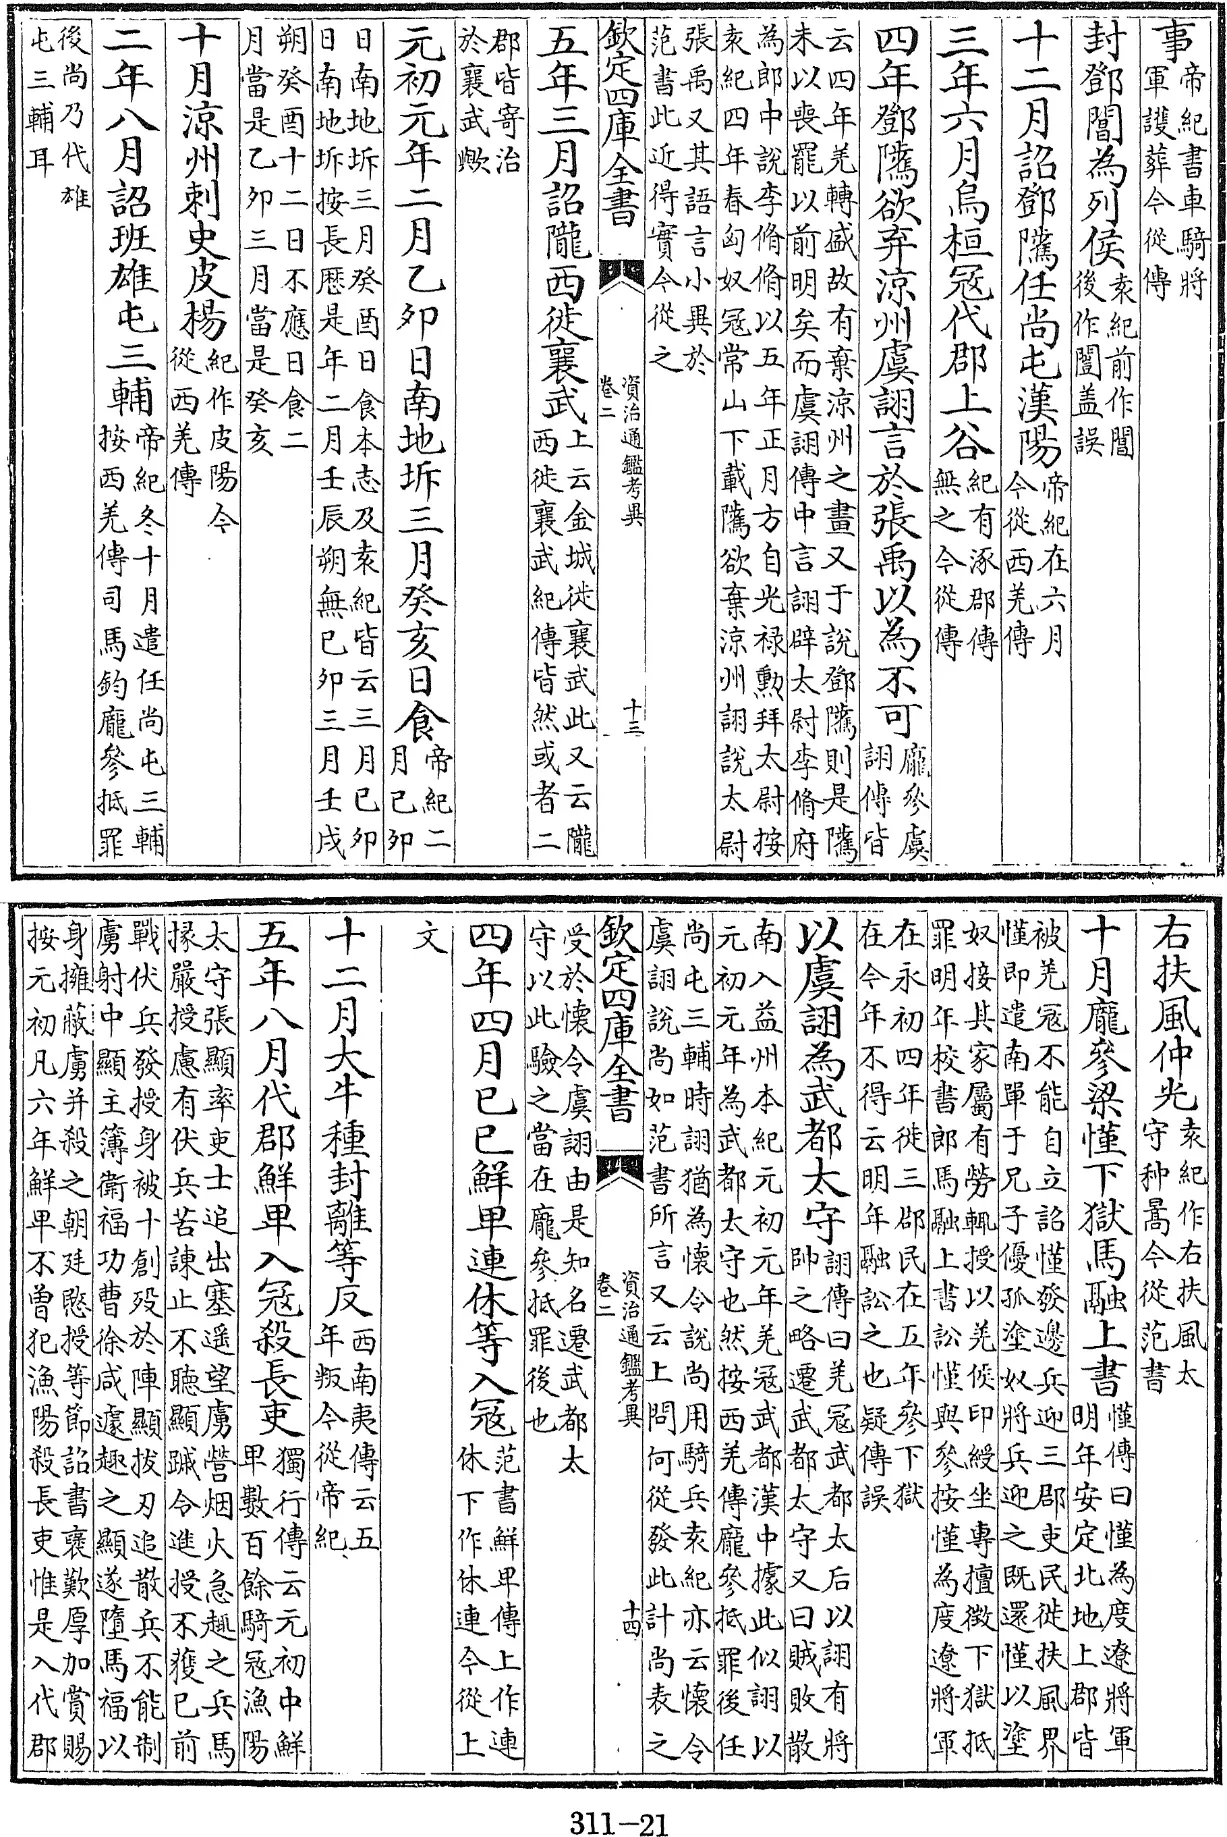 事帝紀書車騎將軍護葬今從傳
封鄧閶為列侯袁紀前作閶後作闓盖誤
十二月詔鄧隲任尚屯漢陽帝紀在六月今從西羌傳
三年六月烏桓冦代郡上谷紀有涿郡傳無之今從傳
四年鄧隲欲弃涼州虞詡言於張禹以為不可龎參虞詡傳皆
云四年羌轉盛故有棄涼州之畫又于說鄧隲則是隲
未以喪罷以前明矣而虞詡傳中言詡辟太尉李脩府
為郎中說李脩脩以五年正月方自光禄勲拜太尉按
袁紀四年春匈奴冦常山下載隲欲棄涼州詡說太尉
張禹又其語言小異於
范書此近得實今從之
欽定四庫全書
資治通鑑考異
卷二
十三
五年三月詔隴西徙襄武上云金城徙襄武此又云隴西徙襄武紀傳皆然或者二
郡皆寄治
於襄武歟
元初元年二月乙卯日南地坼三月癸亥日食帝紀二月己卯
日南地坼三月癸酉日食本志及袁紀皆云三月己卯
日南地坼按長厯是年二月壬辰朔無己卯三月壬戌
朔癸酉十二日不應日食二
月當是乙卯三月當是癸亥
十月涼州刺史皮楊紀作皮陽今從西羌傳
二年八月詔班雄屯三輔帝紀冬十月遣任尚屯三輔按西羌傳司馬鈞龎參抵罪
後尚乃代雄
屯三輔耳
右扶風仲光袁紀作右扶風太守种暠今從范書
十月龎參梁慬下獄馬融上書慬傳曰慬為度遼將軍明年安定北地上郡皆
被羌冦不能自立詔慬發邊兵迎三郡吏民徙扶風界
慬即遣南單于兄子優孤塗奴將兵迎之既還慬以塗
奴接其家屬有勞輒授以羌候印綬坐專擅徵下獄抵
罪明年校書郎馬融上書訟慬與參按慬為度遼將軍
在永初四年徙三郡民在五年參下獄
在今年不得云明年融訟之也疑傳誤
以虞詡為武都太守詡傳曰羌冦武都太后以詡有將帥之略遷武都太守又曰賊敗散
南入益州本紀元初元年羌冦武都漢中據此似詡以
元初元年為武都太守也然按西羌傳龎參抵罪後任
尚屯三輔時詡猶為懷令說尚用騎兵袁紀亦云懷令
虞詡說尚如范書所言又云上問何從發此計尚表之
欽定四庫全書
資治通鑑考異
卷二
十四
受於懷令虞詡由是知名遷武都太
守以此驗之當在龎參抵罪後也
四年四月己巳鮮卑連休等入冦范書鮮卑傳上作連休下作休連今從上
文
十二月大牛種封離等反西南夷傳云五年叛今從帝紀
五年八月代郡鮮卑入冦殺長吏獨行傳云元初中鮮卑數百餘騎冦漁陽
太守張顯率吏士追出塞遥望虜營烟火急趣之兵馬
掾嚴授慮有伏兵苦諫止不聽顯蹴令進授不獲已前
戰伏兵發授身被十創殁於陣顯拔刃追散兵不能制
虜射中顯主簿衛福功曹徐咸遽趣之顯遂墮馬福以
身擁蔽虜并殺之朝廷愍授等節詔書襃歎厚加賞賜
按元初凡六年鮮卑不曾犯漁陽殺長吏惟是入代郡
311-21